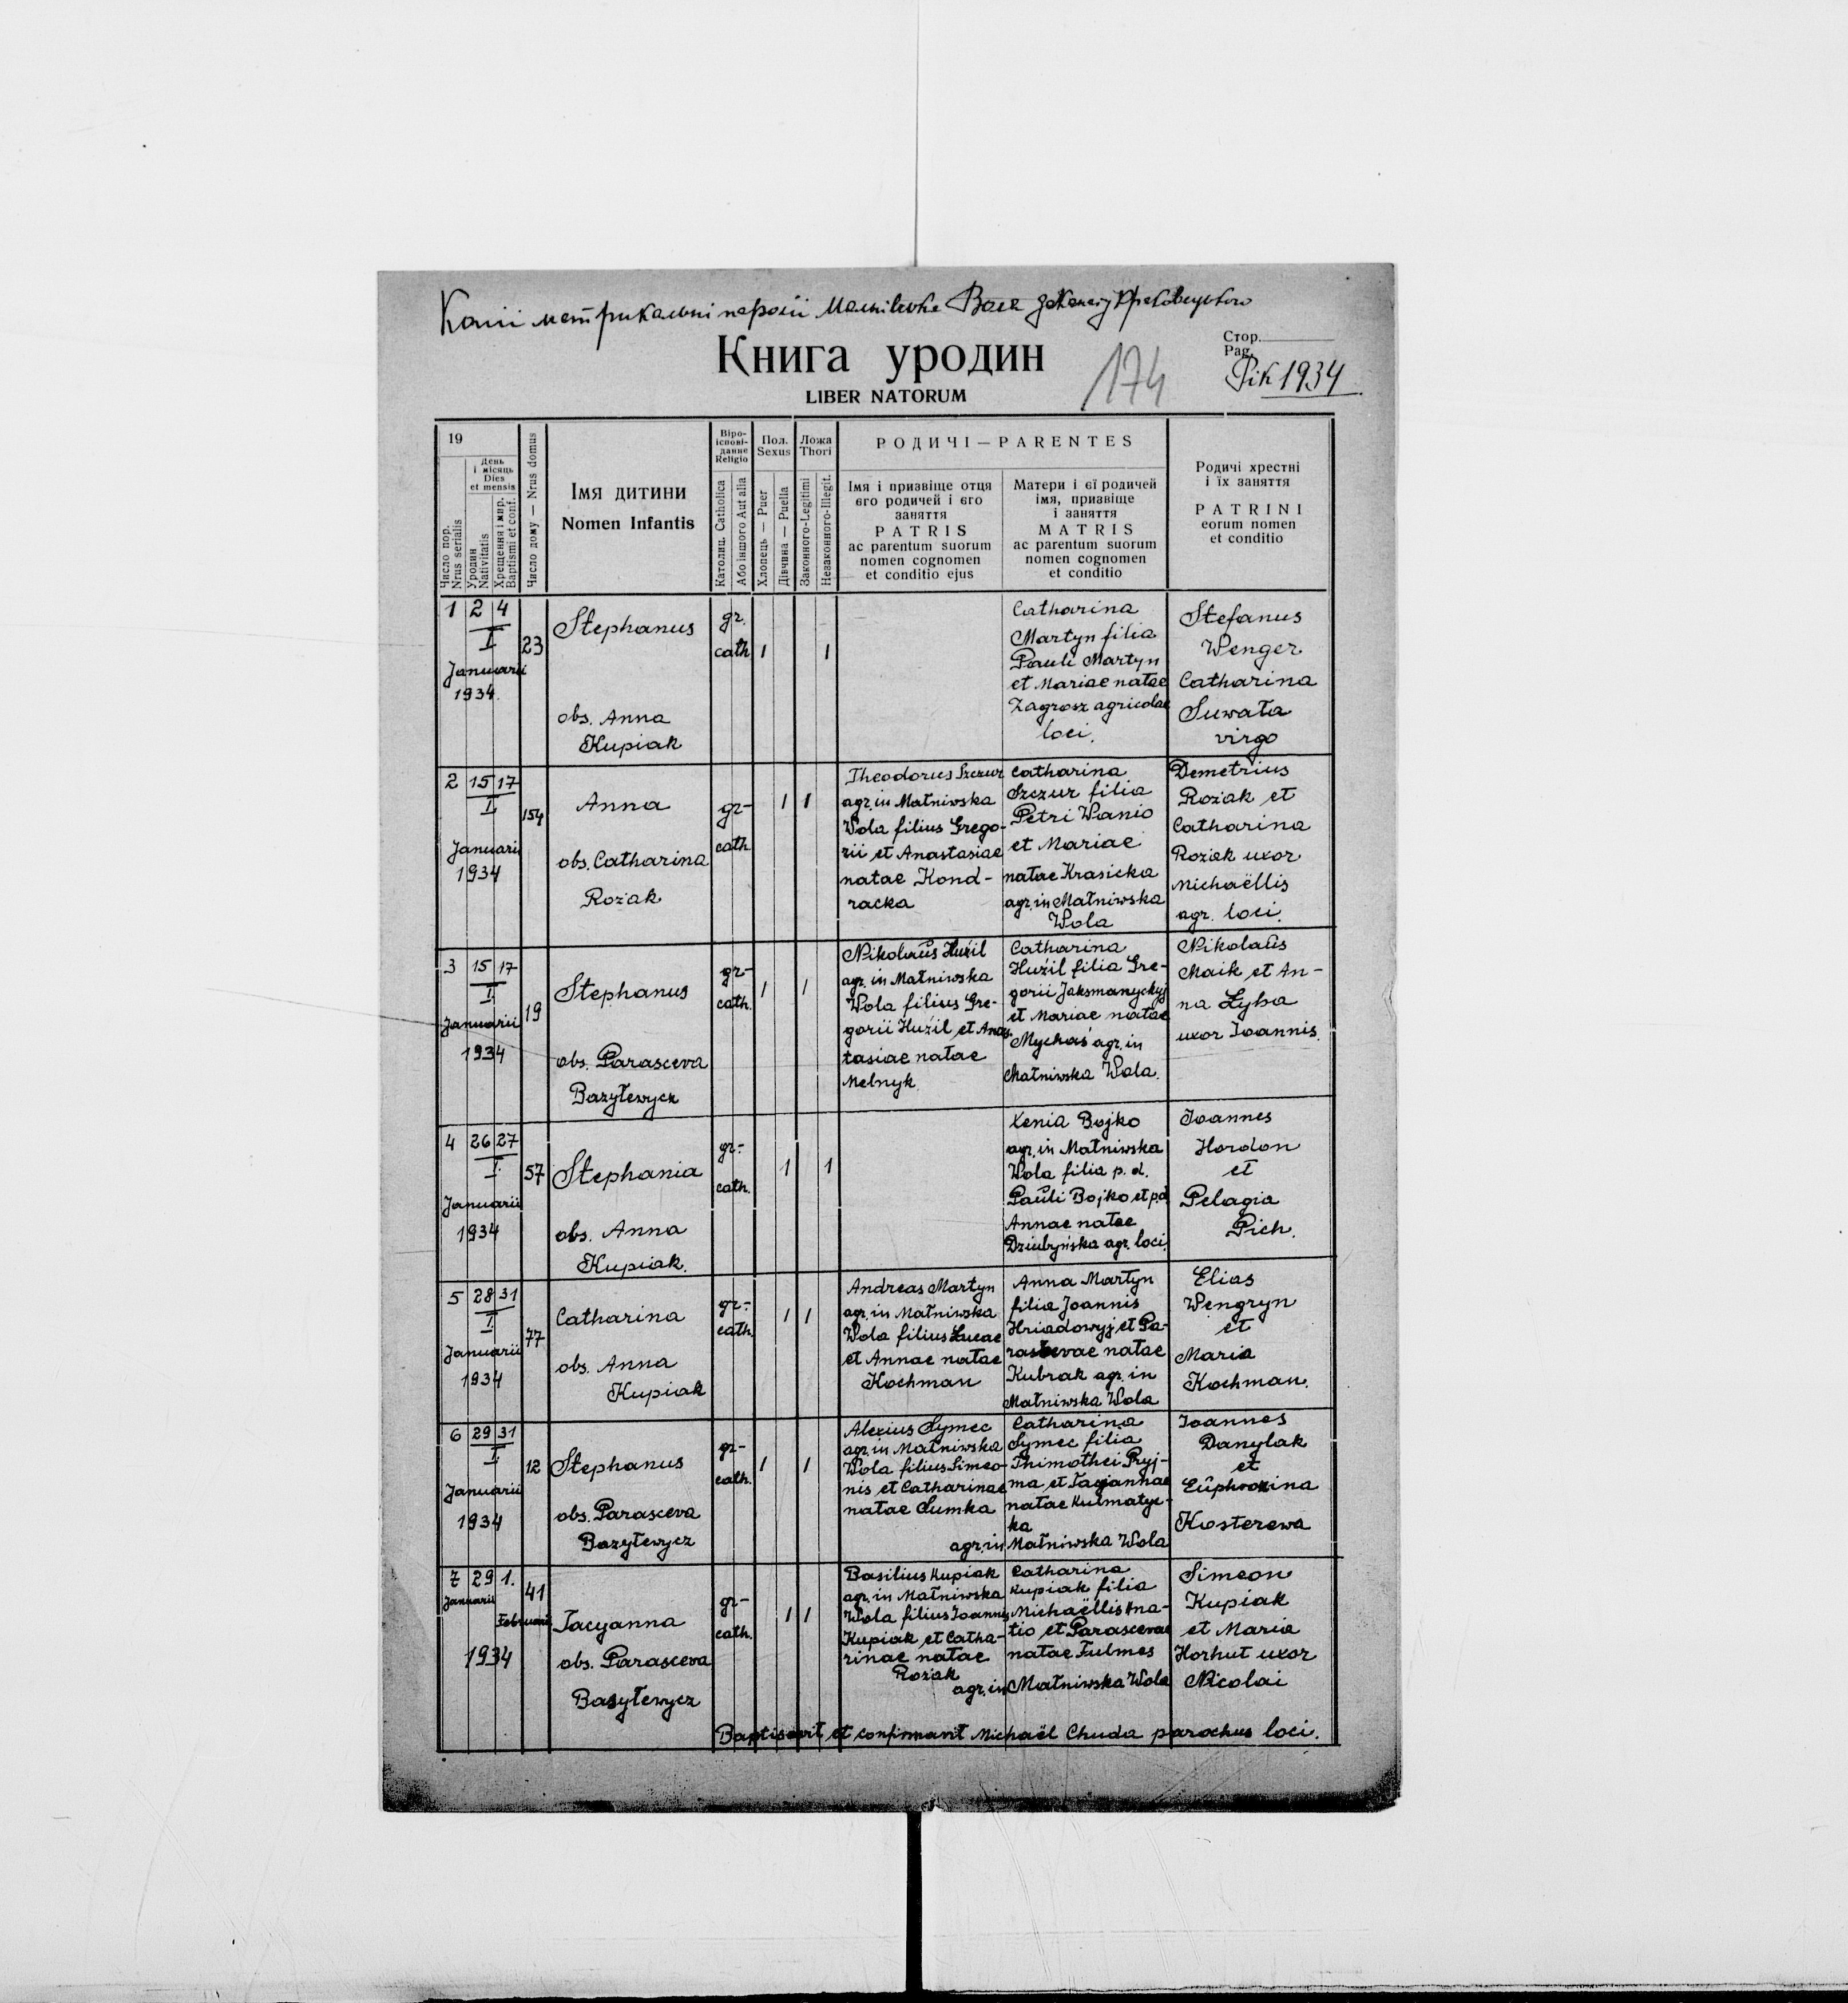 Копії метрикальні парохії Малнівска Воля деканату Краковецького
Книга уродин
LIBER NATORUM
174
Стор.
Pag.
Рік 1934
19
День
і місяць
Dies
et mensis
Число пор.
Nrus serialis
Уродин
Nativitatis
Хрещення і мир.
Baptismi et conf.
Число дому — Nrus domus
Імя дитини
Nomen Infantis
Віро-
ісповi-
данне
Religio
Католиц. Catholica
Або іншого Aut alia
Пол.
Sexus
Хлопець — Puer
Дівчина — Puella
Ложа
Thori
Законного-Legitimi
Незаконного-Illegit.
РОДИЧІ — PARENTES
Імя і призвіще отця
его родичей і его
заняття
PATRIS
ac parentum suorum
nomen cognomen
et conditio ejus
Матери і єї родичей
імя, призвіще
і заняття
MATRIS
ac parentum suorum
nomen cognomen
et conditio
Родичі хрестні
і їх заняття
PATRINI
eorum nomen
et conditio
1 2 4
I
Januarii
1934.
23
Stephanus
obs. Anna
Kupiak
gr.
cath
1
1
Catharina
Martyn filia
Pauli Martyn
et Mariae natae
Zagrosz agricolae
loci.
Stefanus
Wenger
Catharina
Suwała
virgo
2 15 17
I
Januarii
1934
154
Anna
obs. Catharina
Rożak
gr-
cath
1
1
Theodorus Szczur
agr. in Małniwska
Wola filius Grego-
rii et Anastasiae
natae Kond-
racka
Catharina
Szczur filia
Petri Wanio
et Mariae
natae Krasicka
agr. in Małniwska
Wola
Demetrius
Rożak et
Catharina
Rożak uxor
Michaëllis
agr. loci.
3 15 17
I.
Januarii
1934
19
Stephanus
obs. Parasceva
Bazyłewycz
gr-
cath.
1
1
Nikolaŭs Huźil
agr. in Małniwska
Wola filius Gre-
gorii Huźil et Anas-
tasiae natae
Melnyk.
Catharina
Huźil filia Gre-
gorii Jaksmanyckyj
et Mariae natae
Mychaś agr. in
Małniwska Wola.
Nikolaŭs
Maik et An-
na Łyba
uxor Joannis.
4 26 27
I.
Januarii
1934
57
Stephania
obs. Anna
Kupiak.
gr.-
cath.
1
1
Xenia Bojko
agr. in Małniwska
Wola filia p. d.
Paŭli Bojko et p.d.
Annae natae
Dziubyńska agr. loci.
Joannes
Hordon
et
Pelagia
Pich.
5 28 31
I.
Januarii
1934
77
Catharina
obs. Anna
Kupiak
gr.-
cath.
1
1
Andreas Martyn
agr. in Małniwska
Wola filius Lucae
et Annae natae
Kochman
Anna Martyn
filia Joannis
Hriadowyj et Pa-
rascevae natae
Kubrak agr. in
Małniwska Wola
Elias
Wengryn
et
Maria
Kochman.
6 29 31
I.
Januarii
1934
12
Stephanus
obs. Parasceva
Bazyłewycz
gr-
cath.
1
1
Alexius Symec
agr. in Małniwska
Wola filius Simeo-
nis et Catharinae
natae Sumka
agr. in
Catharina
Symec filia
Thimothei Pryj-
ma et Tacjannae
natae Kulmatyc-
ka
Małniwska Wola
Joannes
Danylak
et
Eŭphrozina
Kosterewa
7 29 1.
Januarii
Februarii
1934
41
Tacyanna
obs. Parasceva
Basyłewycz
gr-
cath.
1
1
Basilius Kupiak
agr. in Małniwska
Wola filius Joannis
Kupiak et Catha-
rinae natae
Rożak
agr. in
Catharina
Kupiak filia
Michaëllis Hna-
tio et Parascevae
natae Fulmes
Małniwska Wola
Simeon
Kupiak
et Maria
Horhut uxor
Nicolai
Baptisavit et confirmavit Michaël Chuda parochus loci.